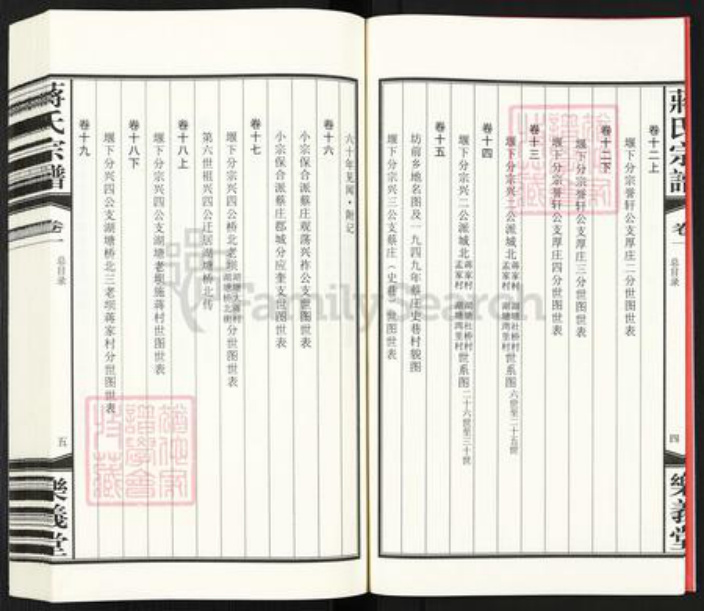 蔣氏宗譜
卷一
总目录
四
樂義堂
卷十二上
堰下分宗誉轩公支厚庄二分世图世表
卷十二下
堰下分宗誉轩公支厚庄三分世图世表
堰下分宗誉轩公支厚庄四分世图世表
卷十三
堰下分宗兴二公派城北 蒋家村 孟家村 湖塘社桥村 湖塘周里村 世系图 六世至二十五世
卷十四
堰下分宗兴二公派城北 蒋家村 孟家村 湖塘社桥村 湖塘周里村 世系图 二十六世至三十世
卷十五
坊前乡地名图及一九四九年蔡庄史巷村貌图
堰下分宗兴三公支蔡庄（史巷）世图世表
六十年见闻·附记
卷十六
小宗保合派蔡庄观荡兴祚公支世图世表
小宗保合派蔡庄郡城分应奎支世图世表
卷十七
堰下分宗兴四公桥北老坝 湖塘桥北街 分世图世表
第六世祖兴四公迁居湖塘桥北传
卷十八上
堰下分宗兴四公支湖塘老坝施蒋村世图世表
卷十八下
堰下分宗兴四公支湖塘桥北三老坝蒋家村分世图世表
卷十九
蔣氏宗譜
卷一
总目录
五
樂義堂
FamilySearch